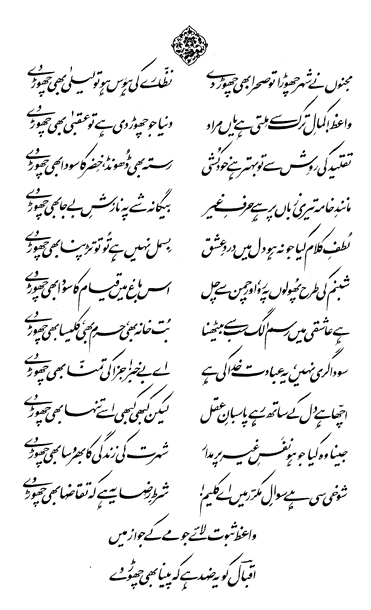 مجنوں نے شہر چھوڑا تو صحرا بھی چھوڑ دے نظّارے کی ہوس ہو تو لیلیٰ بھی چھوڑ دے
واعظ! کمالِ ترک سے ملتی ہے یاں مراد دنیا جو چھوڑ دی ہے تو عقبیٰ بھی چھوڑ دے
تقلید کی روش سے تو بہتر ہے خودکُشی رستہ بھی ڈھونڈ، خِضر کا سودا بھی چھوڑ دے
مانندِ خامہ تیری زباں پر ہے حرفِ غیر بیگانہ شے پہ نازشِ بے جا بھی چھوڑ دے
لُطفِ کلام کیا جو نہ ہو دل میں دردِ عشق بسمل نہیں ہے تُو تو تڑپنا بھی چھوڑ دے
شبنم کی طرح پھولوں پہ رو، اور چمن سے چل اس باغ میں قیام کا سودا بھی چھوڑ دے
ہے عاشقی میں رسم الگ سب سے بیٹھنا بُت خانہ بھی، حرم بھی، کلیسا بھی چھوڑ دے
سوداگری نہیں، یہ عبادت خدا کی ہے اے بے خبر! جزا کی تمنّا بھی چھوڑ دے
اچھا ہے دل کے ساتھ رہے پاسبانِ عقل لیکن کبھی کبھی اسے تنہا بھی چھوڑ دے
جینا وہ کیا جو ہو نفَسِ غیر پر مدار شہرت کی زندگی کا بھروسا بھی چھوڑ دے
شوخی سی ہے سوالِ مکرّر میں اے کلیم! شرطِ رضا یہ ہے کہ تقاضا بھی چھوڑ دے
واعظ ثبوت لائے جو مے کے جواز میں
اقبالؔ کو یہ ضد ہے کہ پینا بھی چھوڑ دے